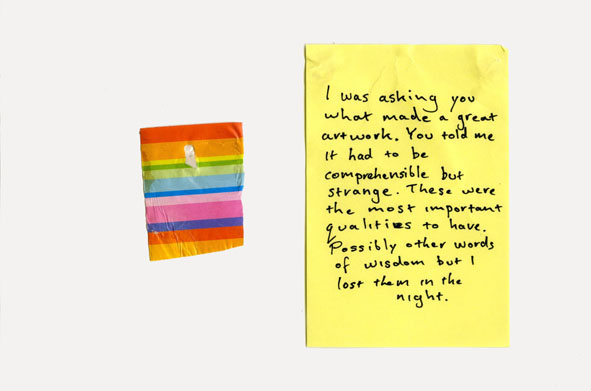 I was asking you
what made a great
artwork. You told me
It had to be
comprehensible but
strange. These were
the most important
qualities to have.
Possibly other words
of wisdom but I
lost them in the
night.